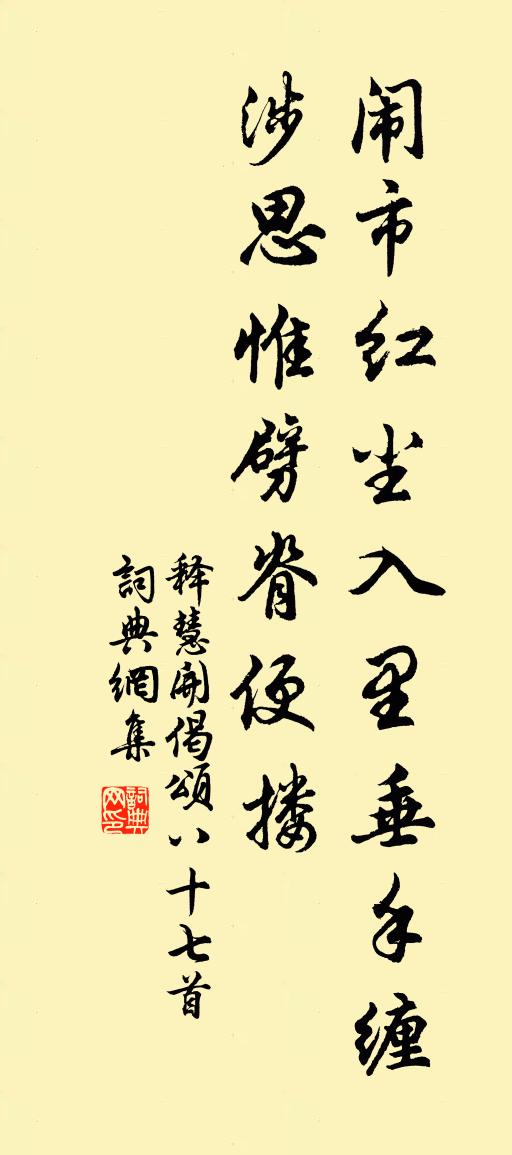 闹市红尘入里垂手缠
涉思惟劈脊便搂
释慧开偈颂八十七首
詞典網集
詞典网印